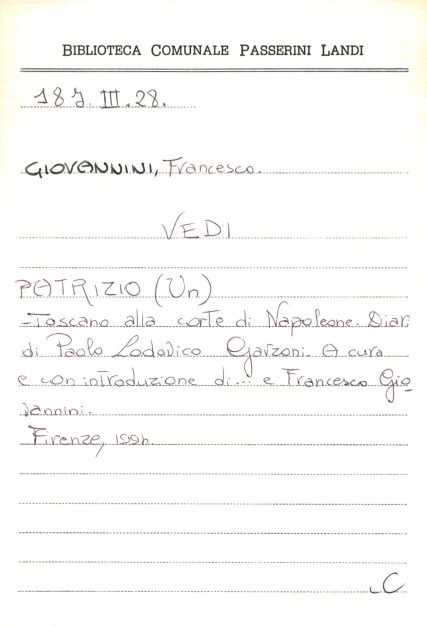 BIBLIOTECA COMUNALE PASSERINI LANDI
187.III.28.
GIOVANNINI, Francesco.
VEDI
PATRIZIO (Un)
-Toscano alla corte di Napoleone. Diari
di Paolo Lodovico Garzoni. A cura
e con introduzione di... e Francesco Gio
vannini.
Firenze,
C